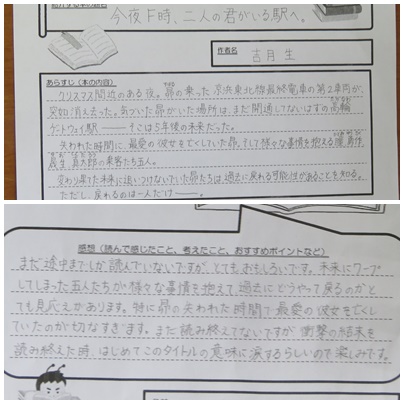 今夜F時、二人の君がいる駅へ。
作者名
吉月 生
あらすじ(本の内容)
クリスマス間近のある夜。昴の乗った京浜東北線最終電車の第2車両が、
突如消え去った。気づいた昴がいた場所は、まだ開通してないはずの高輪
ゲートウェイ駅――そこは5年後の未来だった。
失われた時間に、最愛の彼女を亡くしていた昴。そして様々な事情を抱える
の乗客たち五人。
変わり果てた未来に追いつけないでいた昴たちは過去に戻れる可能性があることを知る。
ただし、戻れるのは一人だけ――。
感想(読んで感じたこと、考えたこと、おすすめポイントなど)
まだ途中までしか読んでいないですが、とてもおもしろいです。未来にワープ
してしまった五人たちが様々な事情を抱えて、過去にどうやって戻るのかと
ても見応えがあります。特に昴の失われた時間で最愛の彼女を亡くし
ていたのが切なすぎます。まだ読み終えてないですが衝撃の結末を
読み終えた時、はじめてこのタイトルの意味に涙するらしいので楽しみです。